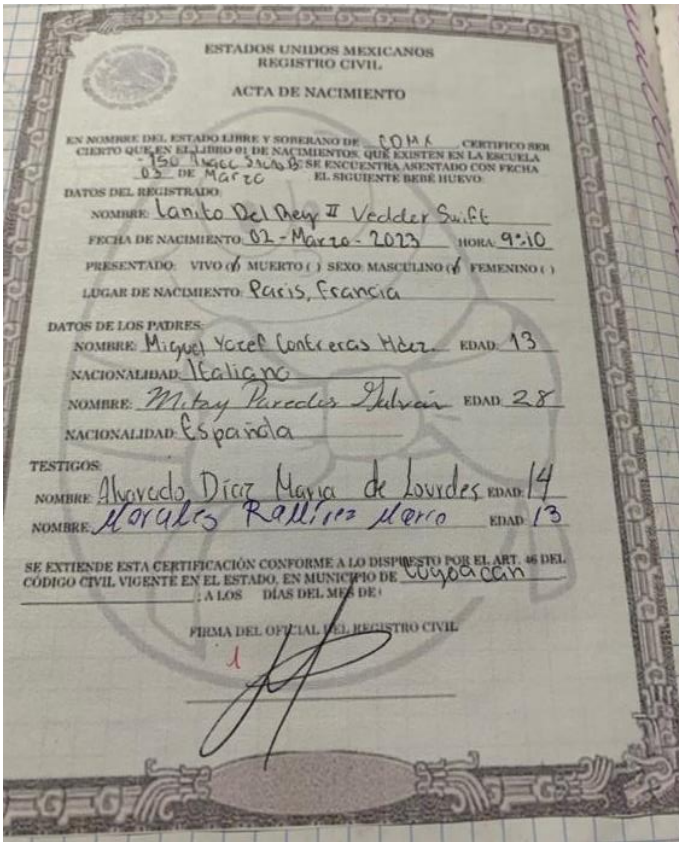 ESTADOS UNIDOS MEXICANOS
REGISTRO CIVIL
ACTA DE NACIMIENTO
EN NOMBRE DEL ESTADO LIBRE Y SOBERANO DE CDMX CERTIFICO SER
CIERTO QUE EN EL LIBRO 01 DE NACIMIENTOS, QUE EXISTEN EN LA ESCUELA
150 SE ENCUENTRA ASENTADO CON FECHA
03 DE Marzo EL SIGUIENTE BEBÉ HUEVO:
DATOS DEL REGISTRADO:
NOMBRE: Lanito Del Rey II Vedder Swift
FECHA DE NACIMIENTO: 02-Marzo-2023 HORA: 9:10
PRESENTADO: VIVO ( ) MUERTO ( ) SEXO: MASCULINO ( ) FEMENINO ( )
LUGAR DE NACIMIENTO: Paris, Francia
DATOS DE LOS PADRES:
NOMBRE: Miguel Yozef Contreras Hdez. EDAD: 13
NACIONALIDAD: Italiano
NOMBRE: Mitzy Paredes Galván EDAD: 28
NACIONALIDAD: Española
TESTIGOS:
NOMBRE: Alvarado Díaz Maria de Lourdes EDAD: 14
NOMBRE: Morales Ramírez Marco EDAD: 13
SE EXTIENDE ESTA CERTIFICACIÓN CONFORME A LO DISPUESTO POR EL ART. 46 DEL
CÓDIGO CIVIL VIGENTE EN EL ESTADO, EN MUNICIPIO DE Coyoacán
; A LOS DÍAS DEL MES DE:
FIRMA DEL OFICIAL DEL REGISTRO CIVIL
1